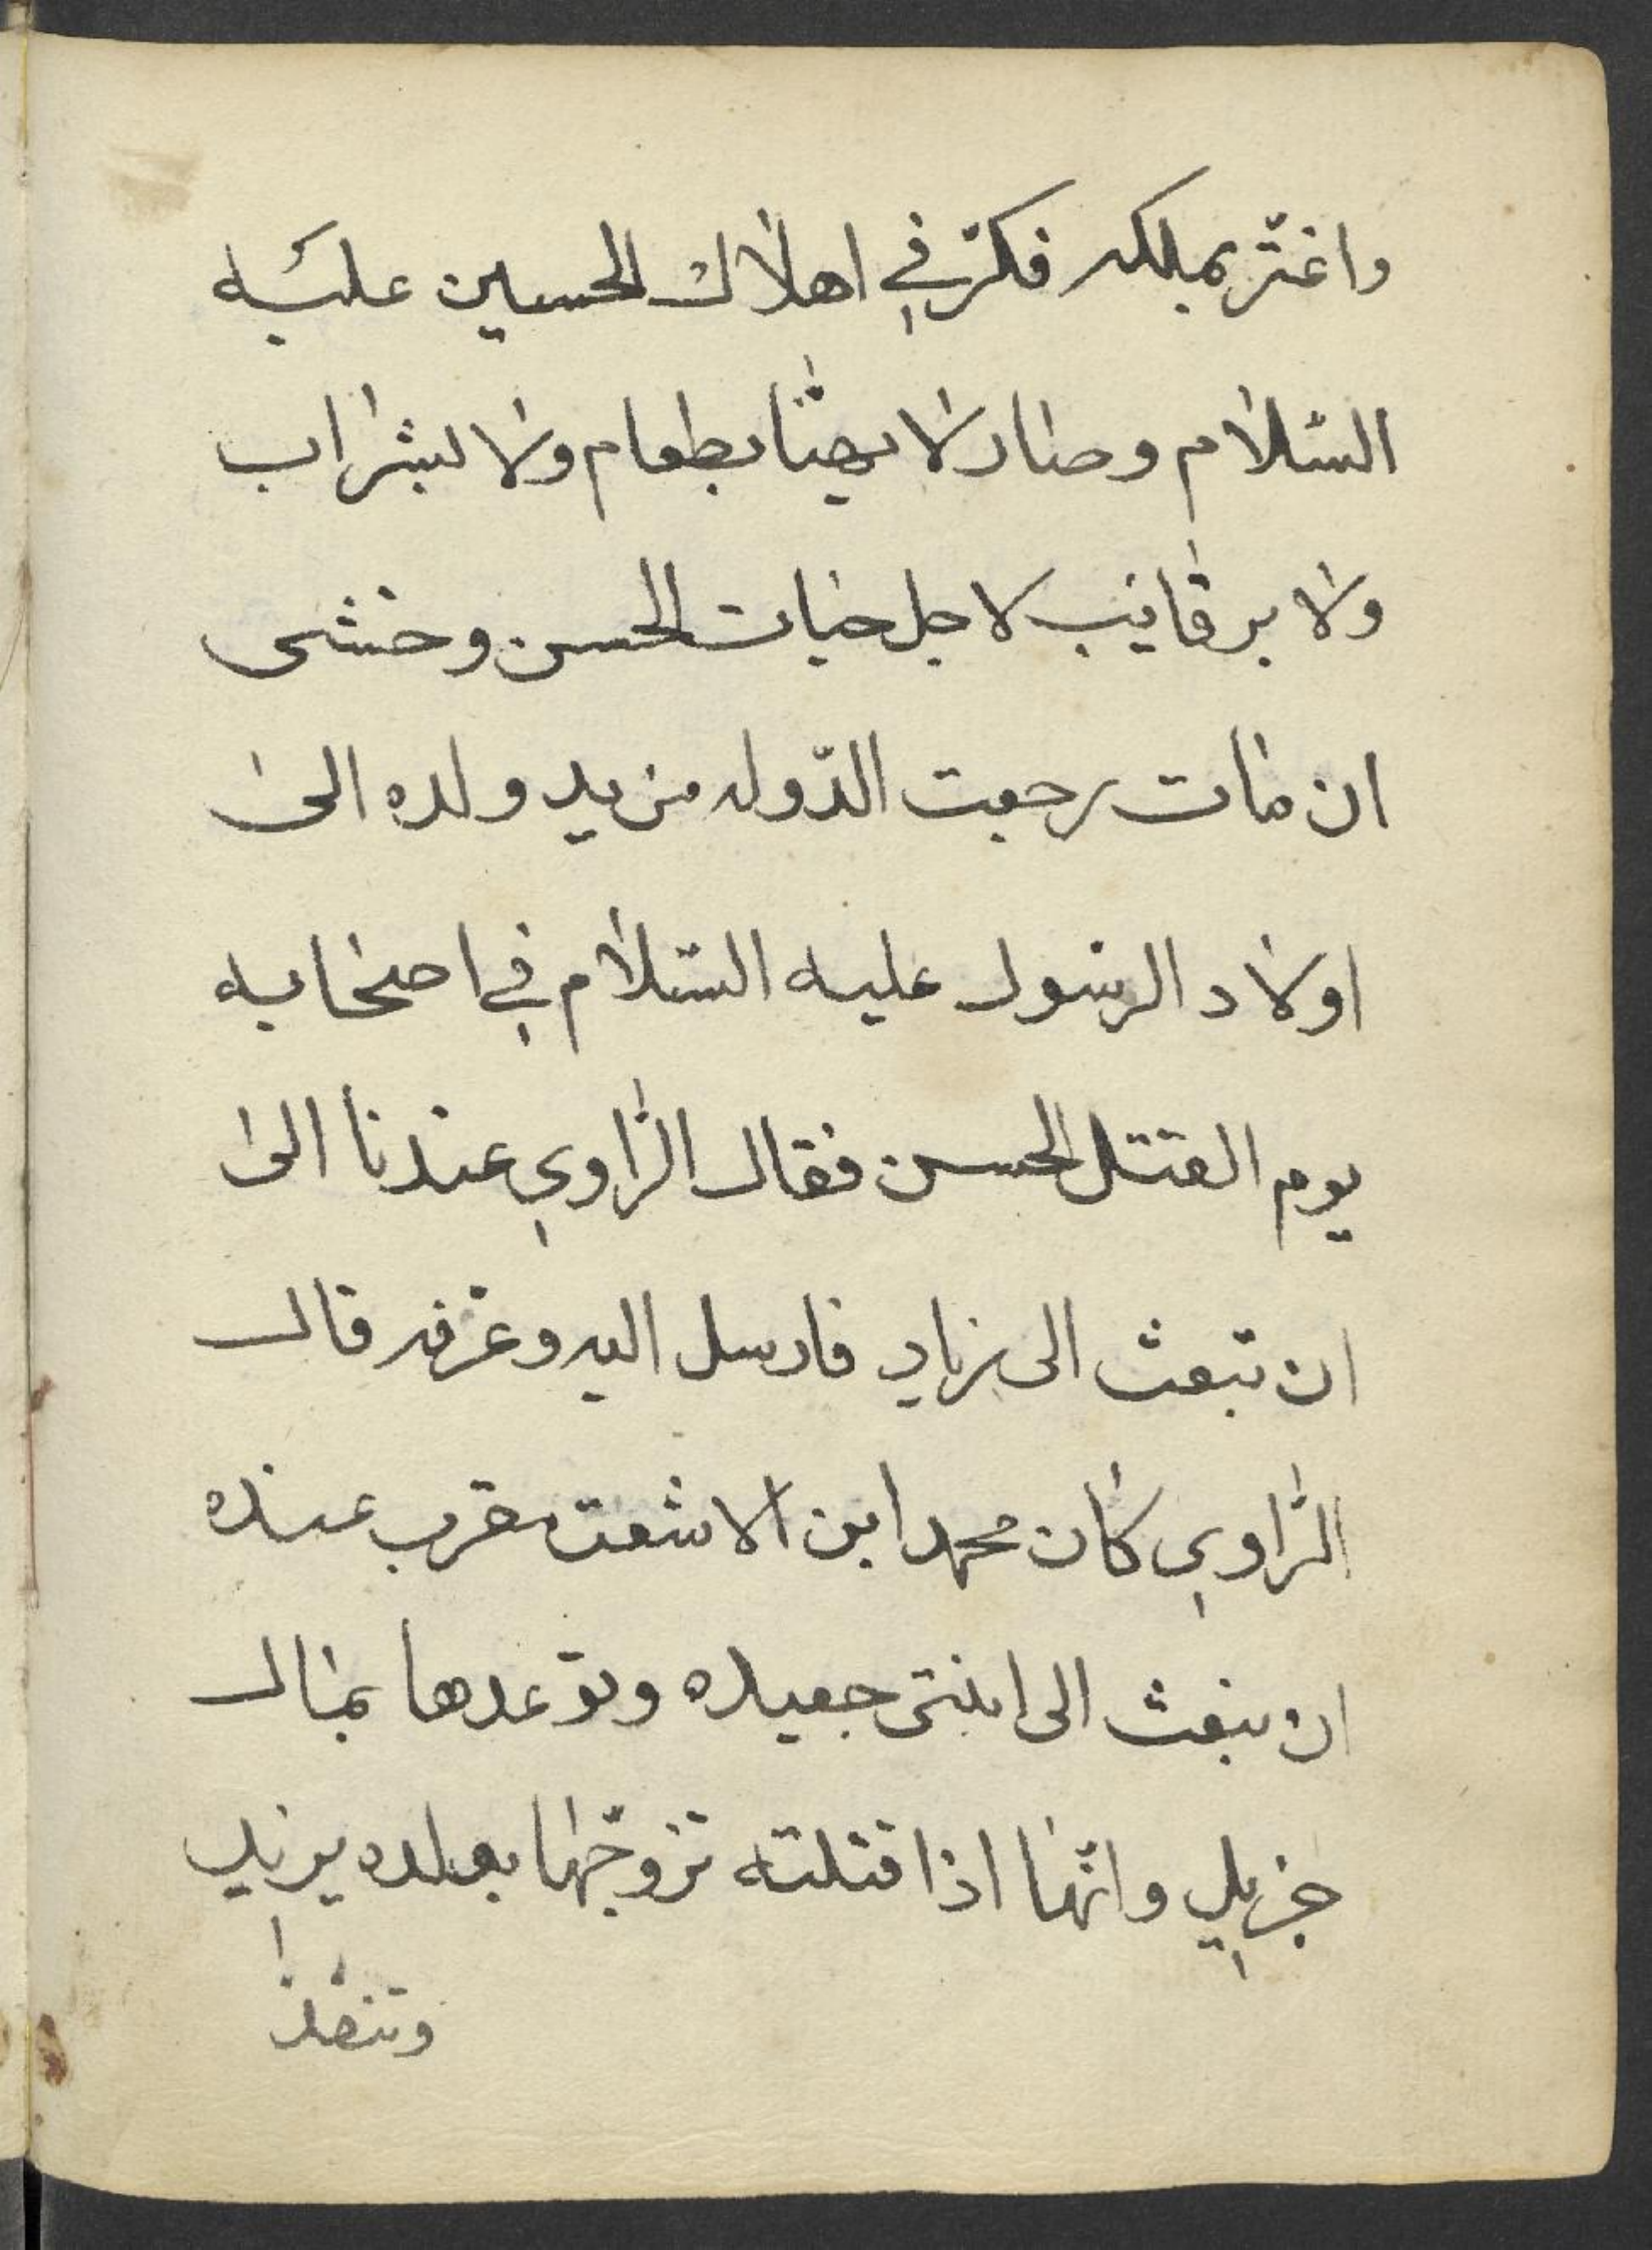 واغتر بملكه فكرّ في اهلاك الحسين عليه
السّلام وصار لا يهنا بطعام ولا بشراب
ولا برقايب لاجل حيات الحسن وخشى
ان مات رجعت الدّوله من يد ولده الى
اولاد الرسول عليه السّلام في اصحابه
يوم القتتل الحسن فقال الرّاوي عندنا الى
ان تبعث الى زياد فارسل اليه وعرّفه قال
الرّاوي كان محمد ابن الاشعت مقرب عنده
ان تبعث الى ابنتى جعيده وتوّعدها بمال
جزيل وانّها اذا قتلته تزوّجها بولده يزيد
وتنفذ